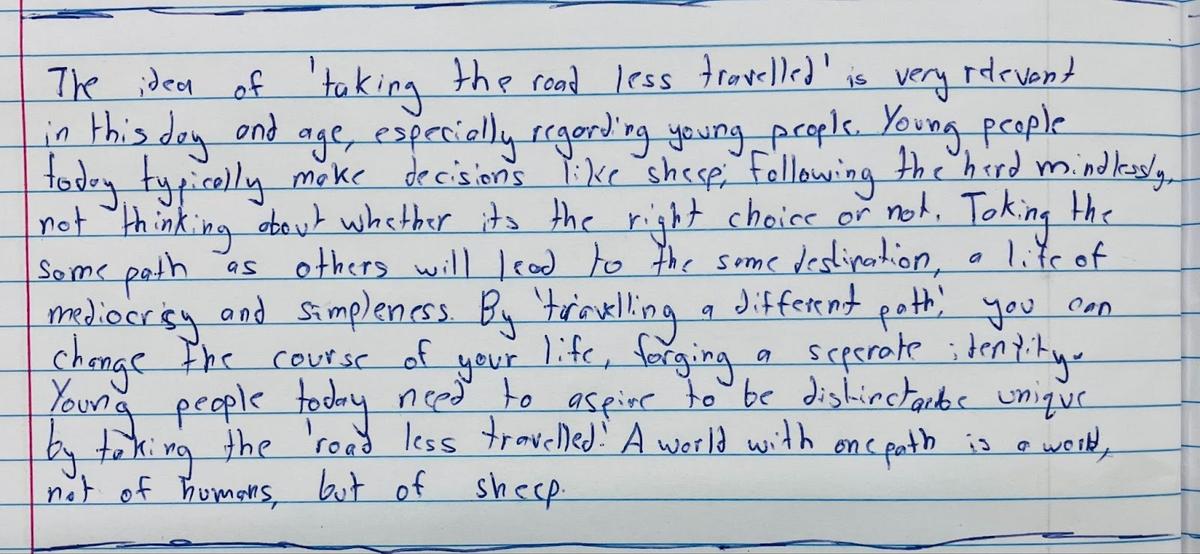 The idea of 'taking the road less travelled' is very relevant
in this day and age, especially regarding young people. Young people
today typically make decisions like sheep; following the herd mindlessly,
not thinking about whether its the right choice or not. Taking the
same path as others will lead to the same destination, a life of
mediocrisy and simpleness. By 'travelling a different path', you can
change the course of your life, forging a seperate identity.
Young people today need to aspire to be distinct unique
by taking the 'road less travelled'. A world with one path is a world,
not of humans, but of sheep.